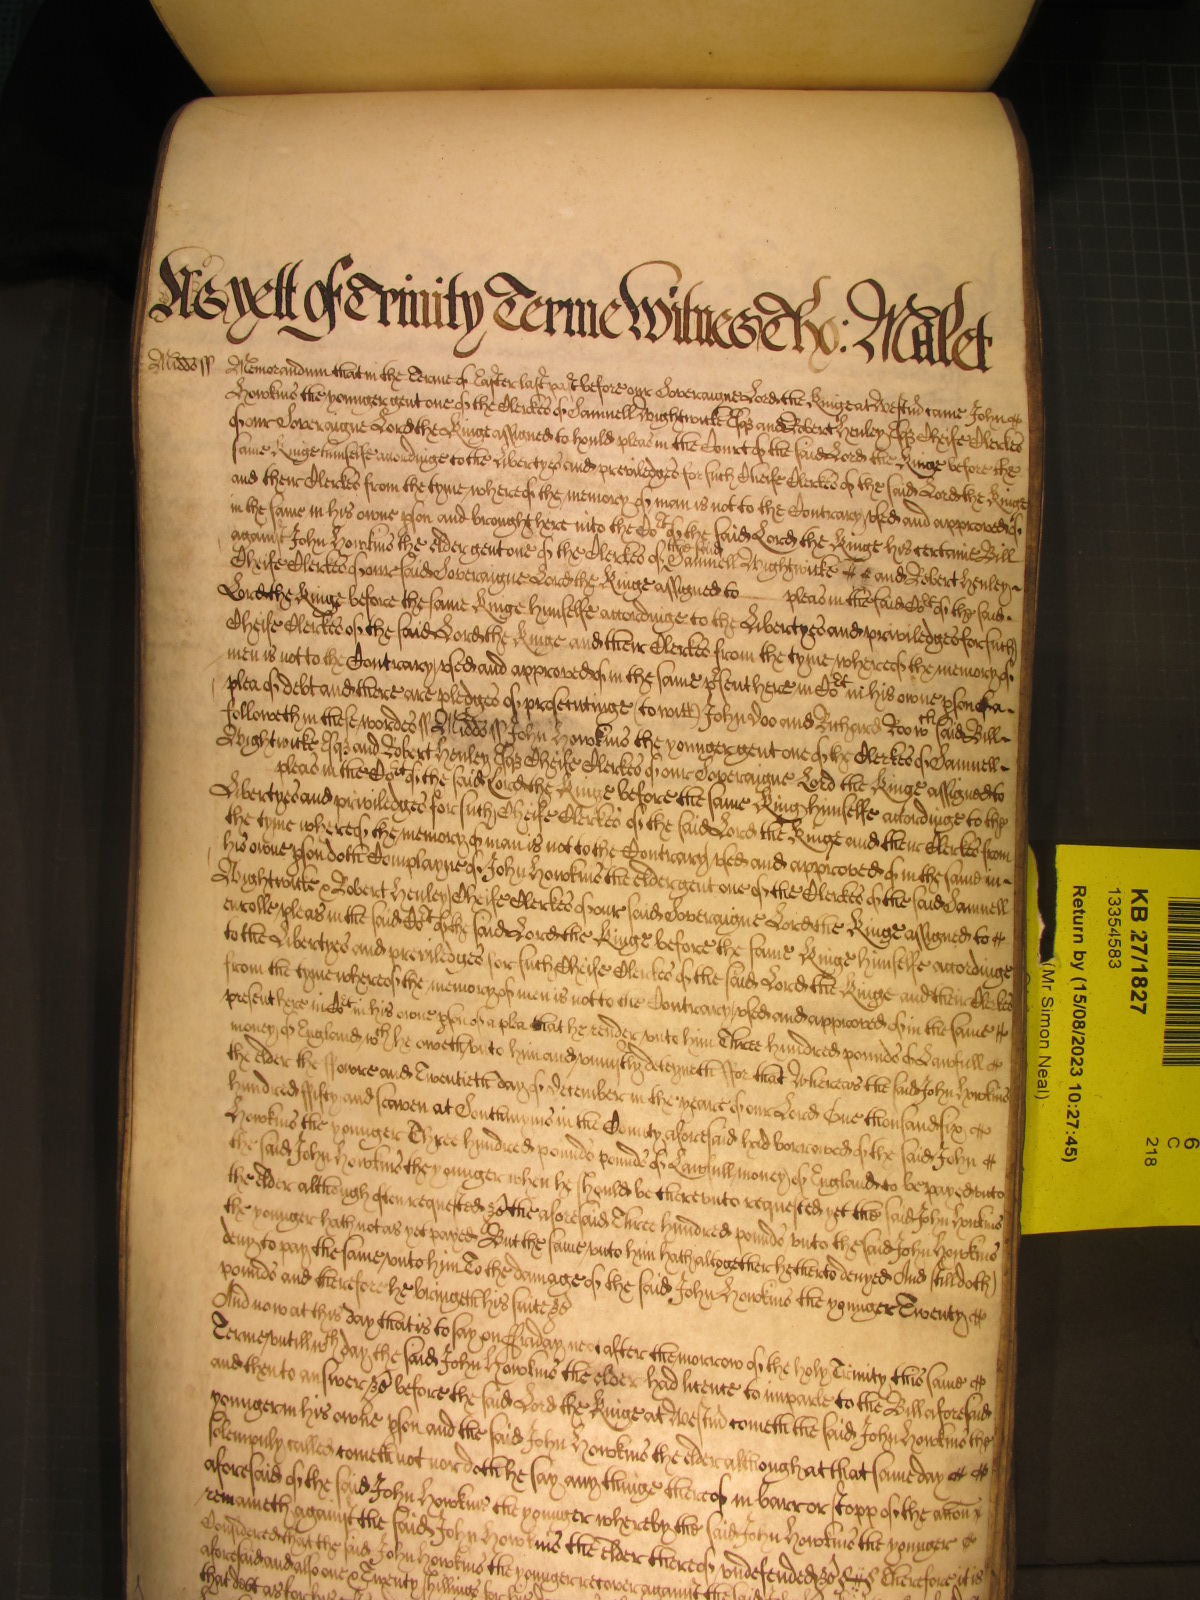 As yett of Trinity Terme Witnes Tho: Malet
Midds ss Memorandum that in the Terme of Easter last past before our Soveraigne Lord the Kinge at Westm̃ came John
Howkins the younger gent one of the Clerkes of Samuell Wightwicke Esqs and Robert Henley Esqs Cheife Clerkes
of our Soveraigne Lord the Kinge assigned to hould pleas in the Court of the said Lord the Kinge before the
same Kinge himselfe accordinge to the Libertyes and priviledges for such Cheife Clerkes of the said Lord the Kinge
and their Clerkes from the tyme whereof the memory of man is not to the Contrary used and approved of
in the same in his owne pson and brought here into the Cort of the said Lord the Kinge his certaine Bill
against John Howkins the elder gent one of the Clerkes of the said Samuell Wightwicke and Robert Henley
Cheife Clerkes of our said Soveraigne Lord the Kinge assigned to pleas in the said Cort of the said
Lord the Kinge before the same Kinge himselfe accordinge to the Libertyes and priviledges for such
Cheife Clerkes of the said Lord the Kinge and their Clerkes from the tyme whereof the memory of
men is not to the Contrary used and approved of in the same psent here in Cort in his owne pson of a
plea of debt and there are pledges of prosecutinge (to witt) John Doo and Richard Roo wch said Bill
followeth in these wordes ss Midds ss John Howkins the younger gent one of the Clerkes of Samuell
Wightwicke Esqs and Robert Henley Esqs Cheife Clerkes of our Soveraigne Lord the Kinge assigned to
pleas in the Cort of the said Lord the Kinge before the same Kinge himselfe accordinge to the
Libertyes and priviledges for such Cheife Clerkes of the said Lord the Kinge and their Clerkes from
the tyme whereof the memory of man is not to the Contrary used and approved of in the same in
his owne pson doth Complayne of John Howkins the elder gent one of the Clerkes of the said Samuell
Wightwicke & Robert Henley Cheife Clerkes of our said Soveraigne Lord the Kinge assigned to
enrolle pleas in the said Cort of the said Lord the Kinge before the same Kinge himselfe accordinge
to the Libertyes and priviledges for such Cheife Clerkes of the said Lord the Kinge and their Clerkes
from the tyme whereof the memory of men is not to the Contrary used and approved of in the same
present here in Cort in his owne pson of a plea that he render unto him Three hundred pounds of Lawfull
money of England wch he oweth unto him and uniustly deteyneth ffor that Whereas the said John Howkins
the elder the ffowre and Twentieth day of December in the yeare of our Lord One thousand six
hundred ffifty and seaven at in the County aforesaid had borrowed of the said John
Howkins the younger Three hundred pounds pounds of Lawfull money of England to be payed unto
the said John Howkins the younger when he should be thereunto requested yet the said John Howkins
the elder although often requested &c the aforesaid Three hundred pounds unto the said John Howkins
the younger hath not as yet payed But the same unto him hath altogether hetherto denyed And still doth
deny to pay the same unto him To the damage of the said John Howkins the younger Twenty
pounds and therefore he bringeth his suite &c
And now at this day that is to say on ffriday next after the morrow of the holy Trinity this same
Terme untill wch day the said John Howkins the elder had licence to imparle to the Bill aforesaid
and then to answer &c before the said Lord the Kinge at Westm̃ cometh the said John Howkins the
younger in his owne pson and the said John Howkins the elder although at that same day
solempnly called cometh not nor doth he say any thinge thereof in barr or stopp of the action
aforesaid of the said John Howkins the younger whereby the said John Howkins the younger
remaineth against the said John Howkins the elder thereof undefended &c Therefore it is
Considered that the said John Howkins the younger recover against the said
aforesaid and also one & Twenty shillings
that debt
KB 27/1827
13354583
Return by (15/08/2023 10:27:45)
(Mr Simon Neal)
6
C
218